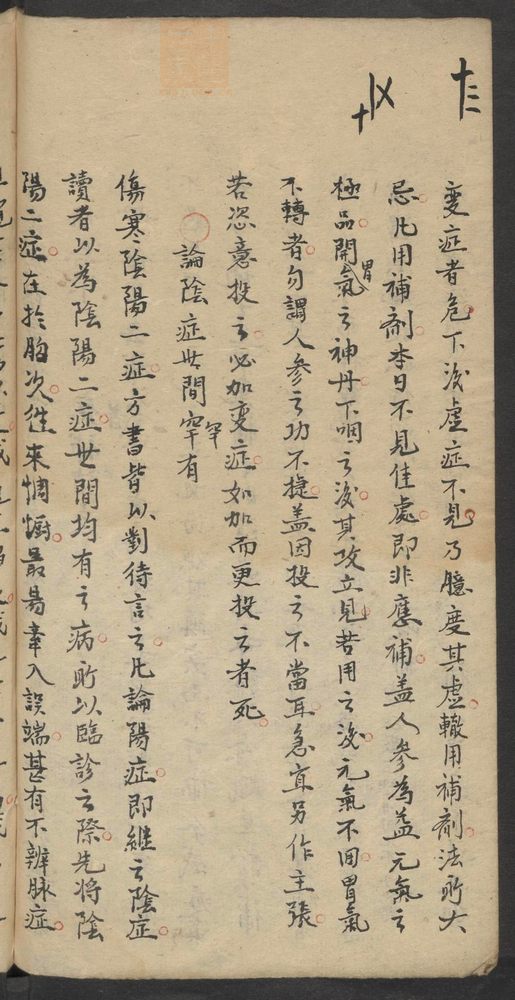 變症者危下後虛症不見乃臆度其虛轍用補劑法所大
忌凡用補劑本日不見佳處即非應補盖人參為益元氣之
極品開胃氣之神丹下咽之後其攻立見若用之後元氣不回胃氣
不轉者勿謂人參之功不捷盖因投之不當耳急宜另作主張
若恣意投之必加變症如加而更投之者死
論陰症世間罕有
傷寒陰陽二症方書皆以對待言之凡論陽症即繼之陰症
讀者以為陰陽二症世間均有之病所以臨診之際先將陰
陽二症在於胸次徃來惆㡡最易牽入誤端甚有不辨脉症